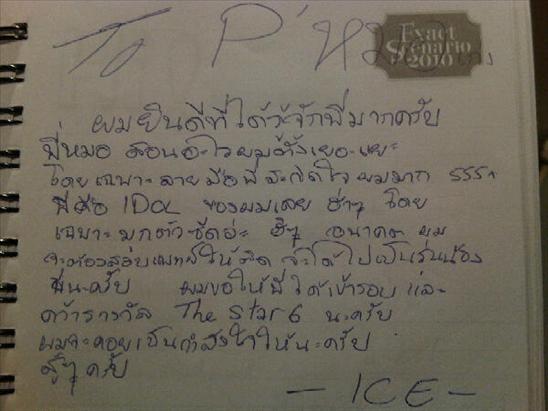 To P'หมอ
Exact
Scenario
2010
ผมยินดีที่ได้รู้จักพี่มากครับ
พี่หมอ สอนอะไรผมตั้งเยอะแยะ
โดยเฉพาะลายมือพี่สะกิดใจ ผมมาก 555+
พี่คือ IDOL ของผมเลย ฮ่าๆ โดย
เฉพาะมุกตัว ฮ่าๆ อนาคต ผม
จะต้องสอบแพทย์ให้ติด จะได้ไปเป็นรุ่นน้อง
พี่นะครับ ผมขอให้พี่ได้เข้ารอบ และ
คว้ารางวัล The Star 6 นะครับ
ผมจะคอยเป็นกำลังใจให้นะครับ
สู้ๆ ครับ
- ICE -